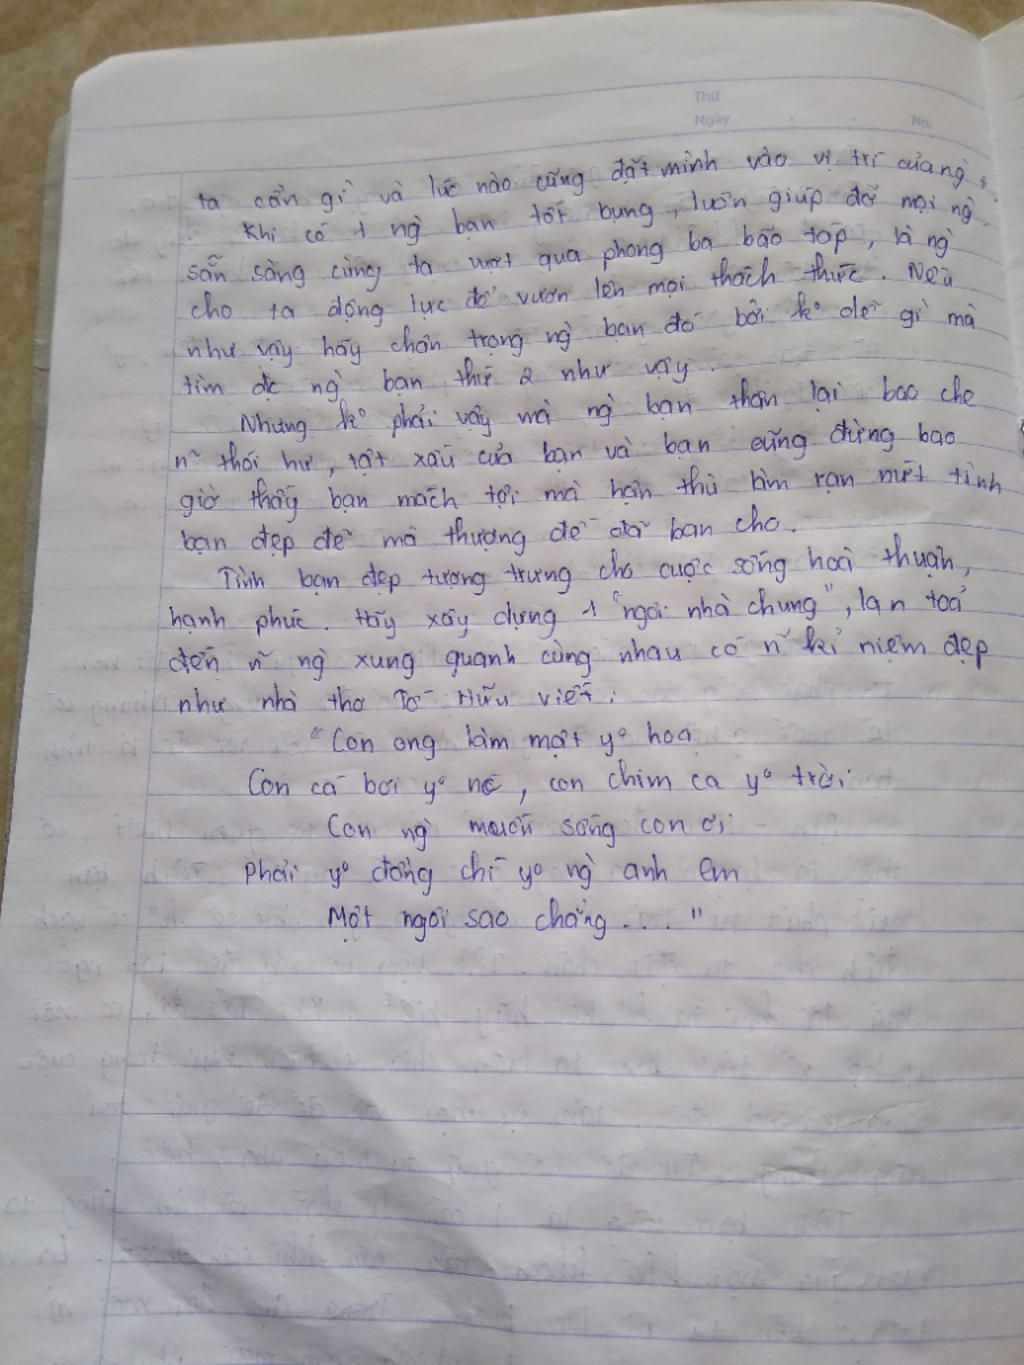 Thứ
Ngày . . No.
ta cần gì và lúc nào cũng đặt mình vào vị trí của ng`.
Khi có 1 ng` bạn tốt bụng, luôn giúp đỡ mọi ng`,
sẵn sàng cùng ta vượt qua phong ba bão táp, là ng`
cho ta động lực để vươn lên mọi thách thức. Nếu
như vậy hãy chân trọng ng` bạn đó bởi k° dễ gì mà
tìm đc ng` bạn thứ 2 như vậy.
Nhưng k° phải vậy mà ng` bạn thân lại bao che
n~ thói hư, tật xấu của bạn và bạn cũng đừng bao
giờ thấy bạn mách tội mà hận thù làm rạn nứt tình
bạn đẹp đẽ mà thượng đế đã ban cho.
Tình bạn đẹp tượng trưng cho cuộc sống hoà thuận,
hạnh phúc. Hãy xây dựng 1 "ngôi nhà chung", lan toả
đến n~ ng` xung quanh cùng nhau có n~ kỉ niệm đẹp
như nhà thơ Tố Hữu viết:
"Con ong làm mật y° hoa
Con cá bơi y° nc, con chim ca y° trời
Con ng` muốn sống con ơi
Phải y° đồng chí y° ng` anh em
Một ngôi sao chẳng..."